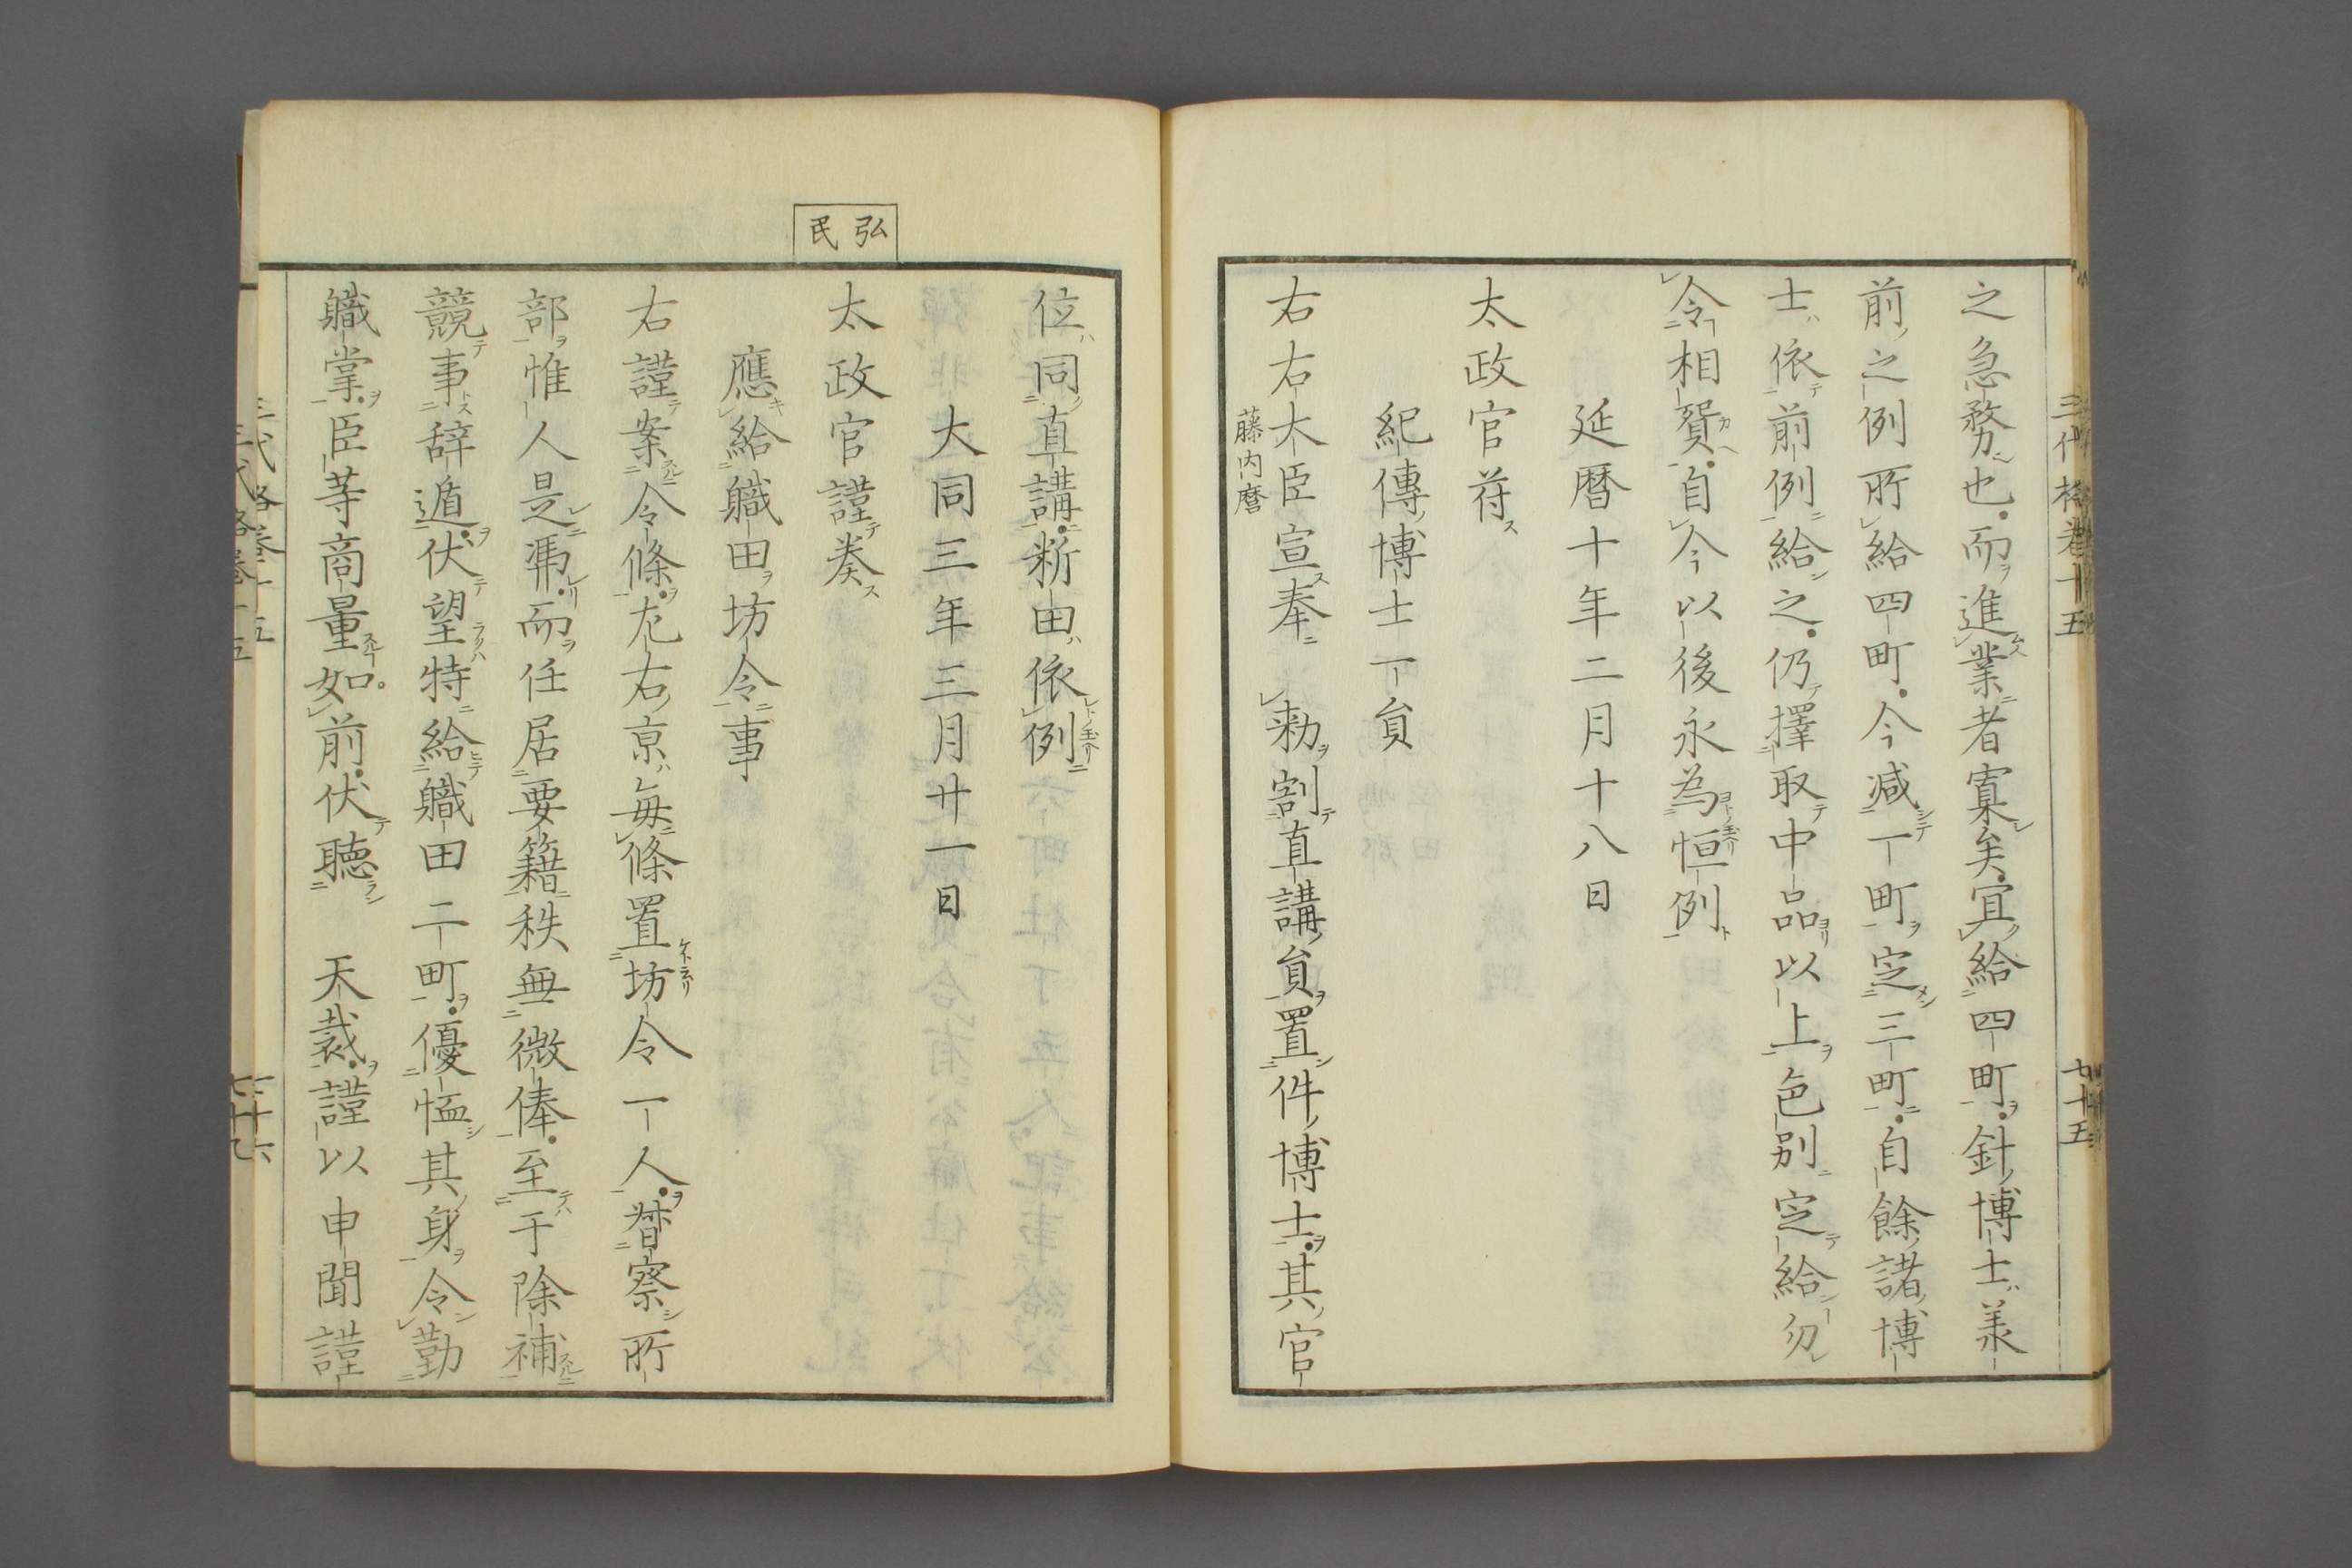 之急務也而進業者寡矣宜給四町針博士羕
前之例所給四町今減一町定三町自餘諸博
士依前例給之仍擇取中品以上色別定給勿
令相貿自今以後永為恒例
延暦十年二月十八日
太政官苻
紀傳博士一員
右右大臣宣奉 勅割直講員置件博士其官
藤内麿
位同直講新田依例
大同三年三月廿一日
弘民
太政官謹奏
應給職田坊令事
右謹案令條左右京毎條置坊令一人督察所
部惟人是馮而任居要籍秩無微俸至于除補
競事辞遁伏望特給職田二町優恤其身令勤
職掌臣等商量如前伏聴 天裁謹以申聞謹